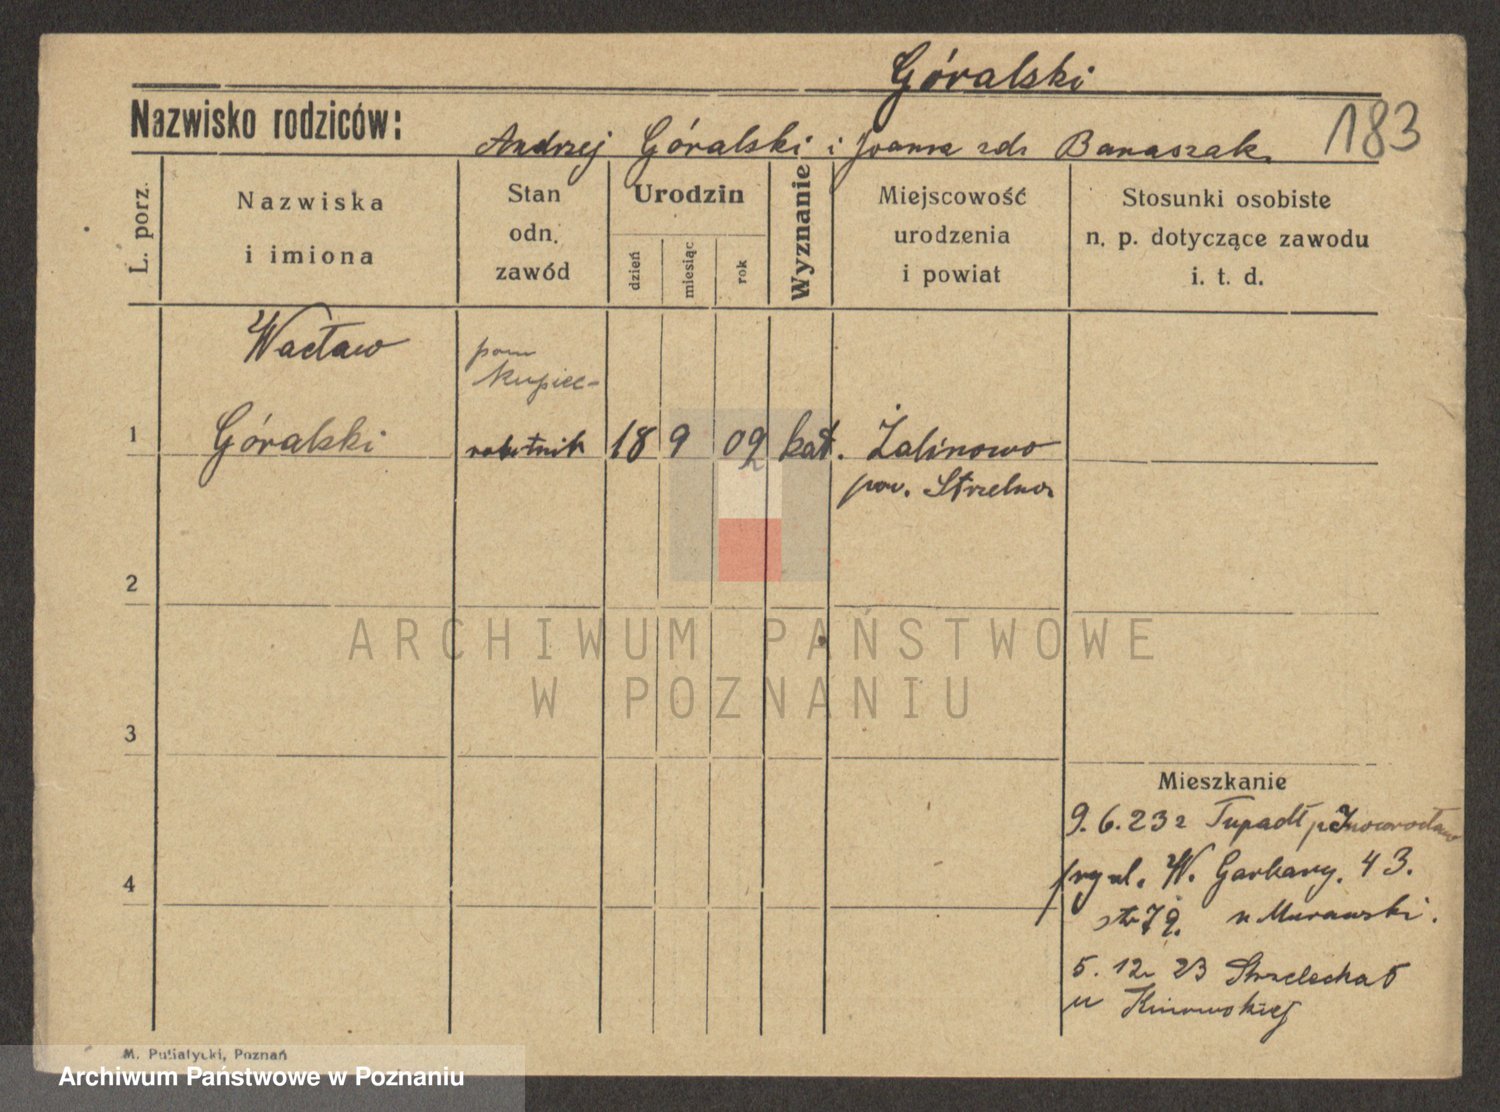 Góralski
183
Nazwisko rodziców:
Andrzej Góralski i Joanna zd. Banaszak
L. porz.
Nazwiska
i imiona
Stan
odn.
zawód
Urodzin
dzień
miesiąc
rok
Wyznanie
Miejscowość
urodzenia
i powiat
Stosunki osobiste
n. p. dotyczące zawodu
i. t. d.
Wacław
pom
kupiec-
1 Góralski robotnik 18 9 02 kat. Żalinowo
pow. Strzelno
2
ARCHIWUM PAŃSTWOWE
W POZNANIU
3
Mieszkanie
9.6.23 z Tupadł p. Inowrocław
4
ul. W. Garbary. 43.
79. u Murawski.
5. 12. 23 Strzelecka 5
u
M. Putiatycki, Poznań
Archiwum Państwowe w Poznaniu